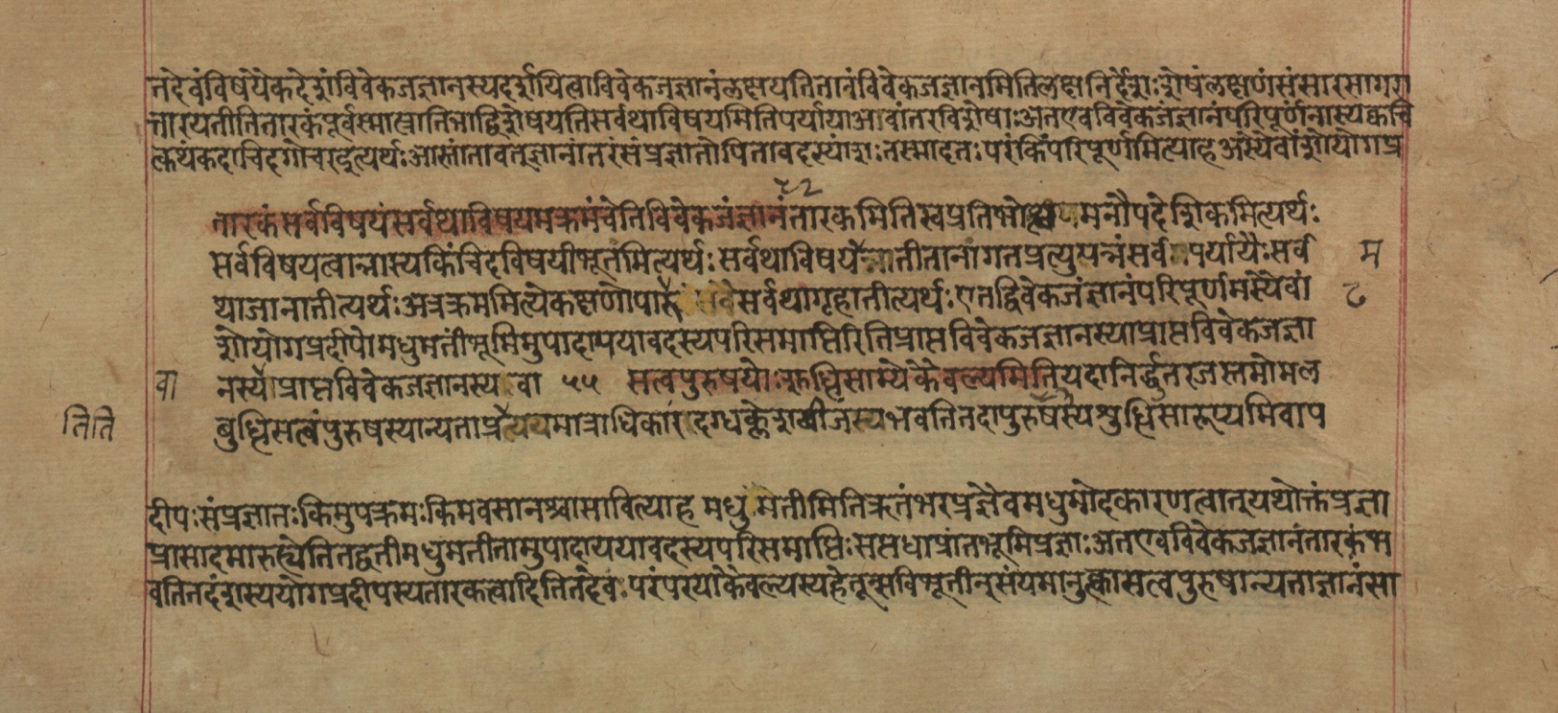 तदेवंविषयैकदेशंविवेकजज्ञानस्यदर्शयित्वाविवेकजज्ञानंलक्षयतितानंविवेकजज्ञानमितिलक्षनिर्देशःशेषंलक्षणंसंसारसागरा
त्तारयतीतितारकंपूर्वस्मात्प्रातिभाद्विशेषयतिसर्वथाविषयमितिपर्यायाअवांतरविशेषाःअतएवविवेकजंज्ञानंपरिपूर्णंनास्यक्वचि
त्कथंकदाचिदगोचरइत्यर्थःआस्तांतावत्ज्ञानांतरंसंप्रज्ञातोपितावदस्यांशःतस्मादतःपरंकिंपरिपूर्णमित्याहअस्यैवांशोयोगप्र
५२
तारकंसर्वविषयंसर्वथाविषयमक्रमंचेतिविवेकजंज्ञानंतारकमितिस्वप्रतिभोत्थमनौपदेशिकमित्यर्थः
सर्वविषयत्वान्नास्यकिंचिदविषयीभूतमित्यर्थःसर्वथाविषयंअतीतानागतप्रत्युत्पन्नंसर्वंपर्यायैःसर्व म
थाजानातीत्यर्थःअक्रममित्येकक्षणोपारूसर्वंसर्वथागृह्णातीत्यर्थःएतद्विवेकजंज्ञानंपरिपूर्णमस्यैवां ढ
शोयोगप्रदीपोमधुमतींभूमिमुपादाययावदस्यपरिसमाप्तिरितिप्राप्तविवेकजज्ञानस्याप्राप्तविवेकजज्ञा
वा नस्यप्राप्तविवेकजज्ञानस्य वा ५५ सत्वपुरुषयोःशुद्धिसाम्येकैवल्यमितियदानिर्द्धूतरजस्तमोमल
तिति बुद्धिसत्वंपुरुषस्यान्यताप्रत्ययमात्राधिकारंदग्धक्लेशबीजंस्यभवतितदापुरुषस्यशुद्धिसारूप्यमिवाप
दीपःसंप्रज्ञातःकिमुपक्रमःकिमवसानश्चासावित्याह मधुमतीमितिऋतंभरप्रज्ञैवमधुमोदकारणत्वात्यथोक्तंप्रज्ञा
प्रासादमारुह्येतितद्वतीमधुमतीतामुपादाययावदस्यपरिसमाप्तिःसप्तधाप्रांतभूमिप्रज्ञाःअतएवविवेकजज्ञानंतारकंभ
वतितदंशस्ययोगप्रदीपस्यतारकत्वादितितदेवंपरंपरयाकैवल्यस्यहेतून्सविभूतीन्संयमानुक्त्वासत्वपुरुषान्यताज्ञानंसा